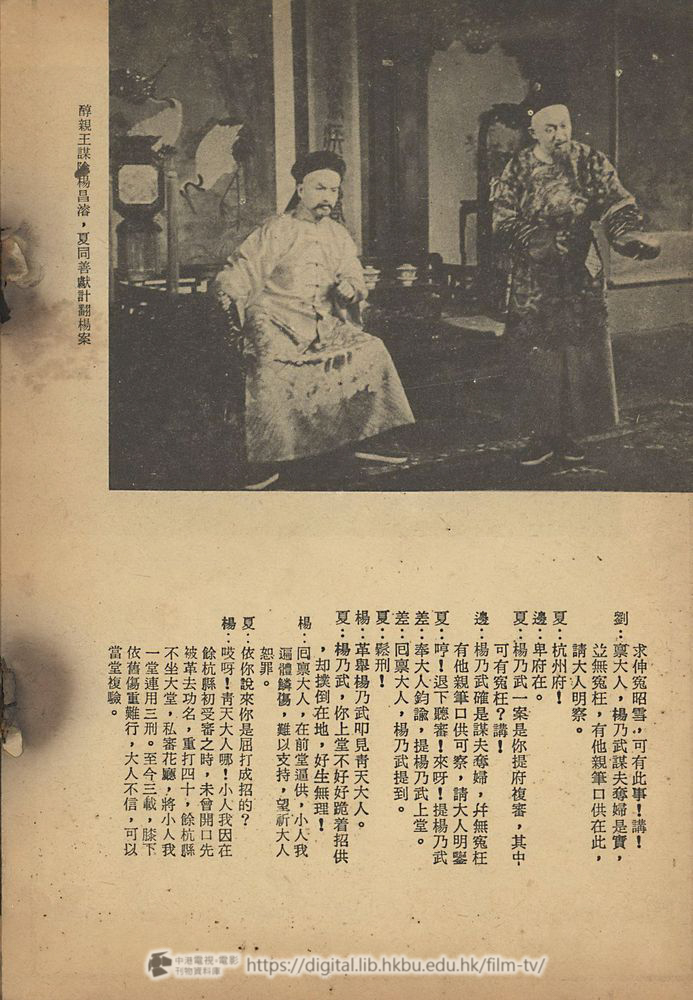 醇親王謀陰楊昌濬，夏同善獻計翻楊案
求伸寃昭雪，可有此事！講！
劉：禀大人，楊乃武謀夫奪婦是實，
並無寃枉，有他親筆口供在此，
請大人明察。
夏：杭州府！
邊：卑府在。
夏：楊乃武一案是你提府複審，其中
可有寃枉？講！
邊：楊乃武確是謀夫奪婦，幷無寃枉
有他親筆口供可察，請大人明鑒
夏：哼！退下聽審！來呀！提楊乃武
差：奉大人鈞諭，提楊乃武上堂。
差：囘禀大人，楊乃武提到。
夏：鬆刑！
楊：革舉楊乃武叩見靑天大人。
夏：楊乃武，你上堂不好好跪着招供
，却撲倒在地，好生無理！
楊：囘禀大人，在前堂逼供，小人我
遍體鱗傷，難以支持，望祈大人
恕罪。
夏：依你說來你是屈打成招的？
楊：哎呀！靑天大人哪！小人我因在
餘杭縣初受審之時，未曾開口先
被革去功名，重打四十，餘杭縣
不坐大堂，私審花廳，將小人我
一堂連用三刑。至今三載，膝下
依舊傷重難行，大人不信，可以
當堂複驗。
中港電視・電影
刊物資料庫
https://digital.lib.hkbu.edu.hk/film-tv/